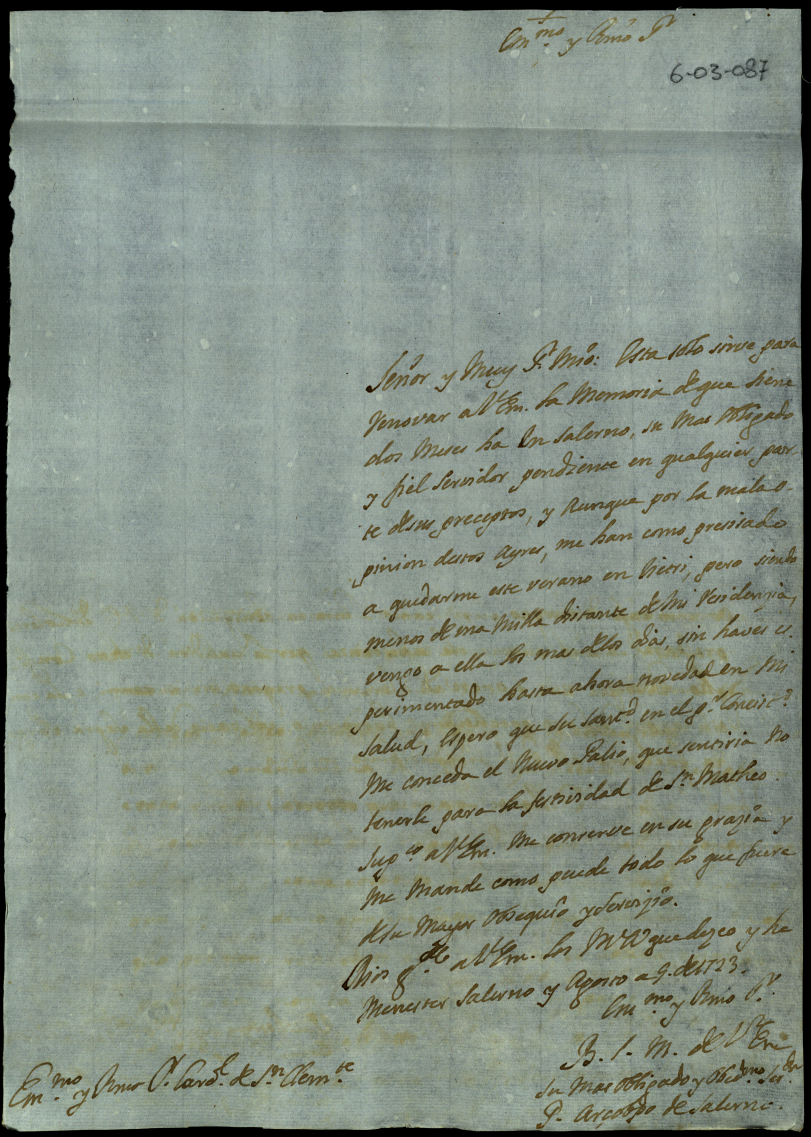 Em.mo y Rmo Sr
6-03-087
Señor y Muy Sr. Mio: Esta solo sirve para
renovar a V. Em. la Memoria de que tiene
dos Meses ha en Salerno, su Mas obligado
y fiel Servidor pendiente en qualquier par-
te desus preceptos, y aunque por la mala o-
pinion destos Ayres, me han como presisado
a quedarme este verano en Vietri, pero siendo
menos de una Milla distante de Mi residenzia,
vengo a ella los mas delos dias, sin haver es-
perimentado hasta ahora novedad en Mi
salud, espero que su Santd. en el pr. Concist.o
Me conceda el Nuevo Palio, que sentiria no
tenerle para la festividad de Sn. Matheo.
Supco a V. Em. Me conserve en su grazia y
Me Mande como puede todo lo que fuere
de su Mayor obsequio y servizio.
Dios gde a V. Em. los Ms As que dezeo y he
Menester Salerno y Agosto a 9. de 1723.
Em.mo y Rmo Sr.
B. l. M. de V. Em.
su Mas obligado y obed.mo Ser.dor
P. Arcobpo de Salerno.
Em.mo y Rmo Sr. Card.l de Sn Clem.te